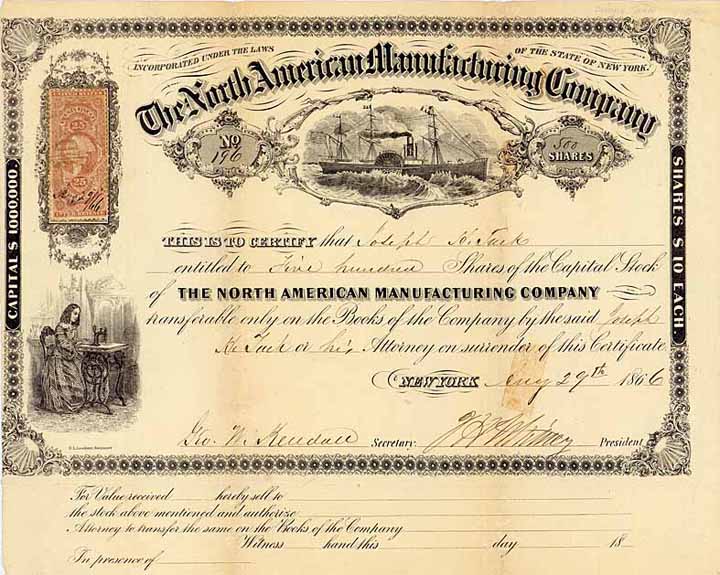 INCORPORATED UNDER THE LAWS OF THE STATE OF NEW YORK.
The North American Manufacturing Company
No 196
500 SHARES
25
25
CAPITAL $ 1000,000.
SHARES $ 10 EACH
THIS IS TO CERTIFY that Joseph K. Tuck
entitled to Five hundred Shares of the Capital Stock
of THE NORTH AMERICAN MANUFACTURING COMPANY
transferable only on the Books of the Company by the said Joseph
K. Tuck or his Attorney on surrender of this Certificate
NEW YORK Aug 29th 1866
Geo. W. Kendall Secretary. Whitney President
For Value received hereby sell to
the stock above mentioned and authorize
Attorney to transfer the same on the Books of the Company
Witness hand this day 18
In presence of